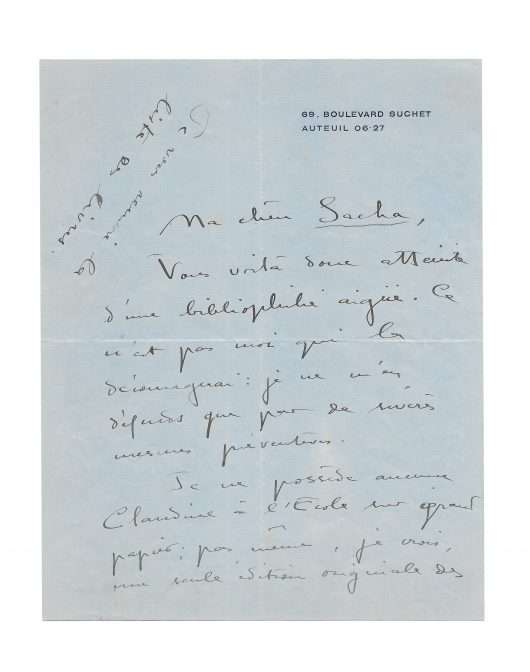 69, BOULEVARD SUCHET
AUTEUIL 06-27
Je vous renvoie la
liste des livres
Ma chère Sacha,
Vous voilà donc atteinte
d'une bibliophilie aigüe. Ce
n'est pas moi qui la
découragerai : je ne m'en
défends que par de sévères
mesures préventives.
Je ne possède aucune
Claudine à l'Ecole sur grand
papier ; pas même, je crois,
une seule édition originale des